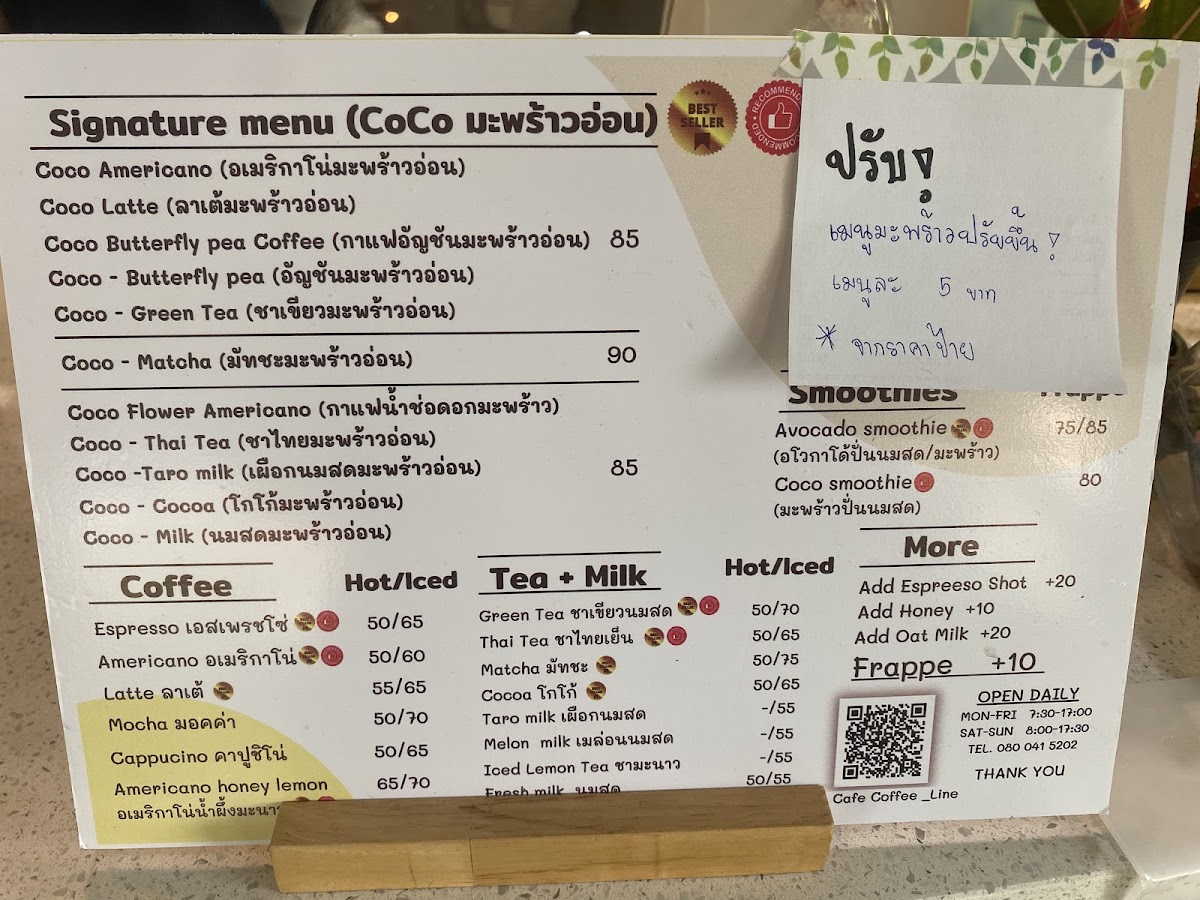 Signature menu (CoCo มะพร้าวอ่อน)
BEST SELLER
RECOMMENDED
Coco Americano (อเมริกาโน่มะพร้าวอ่อน)
Coco Latte (ลาเต้มะพร้าวอ่อน)
Coco Butterfly pea Coffee (กาแฟอัญชันมะพร้าวอ่อน) 85
Coco - Butterfly pea (อัญชันมะพร้าวอ่อน)
Coco - Green Tea (ชาเขียวมะพร้าวอ่อน)
Coco - Matcha (มัทชะมะพร้าวอ่อน) 90
Coco Flower Americano (กาแฟน้ำช่อดอกมะพร้าว)
Coco - Thai Tea (ชาไทยมะพร้าวอ่อน)
Coco -Taro milk (เผือกนมสดมะพร้าวอ่อน) 85
Coco - Cocoa (โกโก้มะพร้าวอ่อน)
Coco - Milk (นมสดมะพร้าวอ่อน)
ปรับ
เมนูมะพร้าวปรับขึ้น !
เมนูละ 5 บาท
* จากราคาป้าย
Smoothies Frappe
Avocado smoothie 75/85
(อโวกาโด้ปั่นนมสด/มะพร้าว)
Coco smoothie 80
(มะพร้าวปั่นนมสด)
Coffee Hot/Iced
Espresso เอสเพรชโซ่ 50/65
Americano อเมริกาโน่ 50/60
Latte ลาเต้ 55/65
Mocha มอคค่า 50/70
Cappucino คาปูชิโน่ 50/65
Americano honey lemon 65/70
อเมริกาโน่น้ำผึ้งมะนาว
Tea + Milk Hot/Iced
Green Tea ชาเขียวนมสด 50/70
Thai Tea ชาไทยเย็น 50/65
Matcha มัทชะ 50/75
Cocoa โกโก้ 50/65
Taro milk เผือกนมสด -/55
Melon milk เมล่อนนมสด -/55
Iced Lemon Tea ชามะนาว -/55
Fresh milk นมสด 50/55
More
Add Espreeso Shot +20
Add Honey +10
Add Oat Milk +20
Frappe +10
OPEN DAILY
MON-FRI 7:30-17:00
SAT-SUN 8:00-17:30
TEL. 080 041 5202
THANK YOU
Cafe Coffee _Line